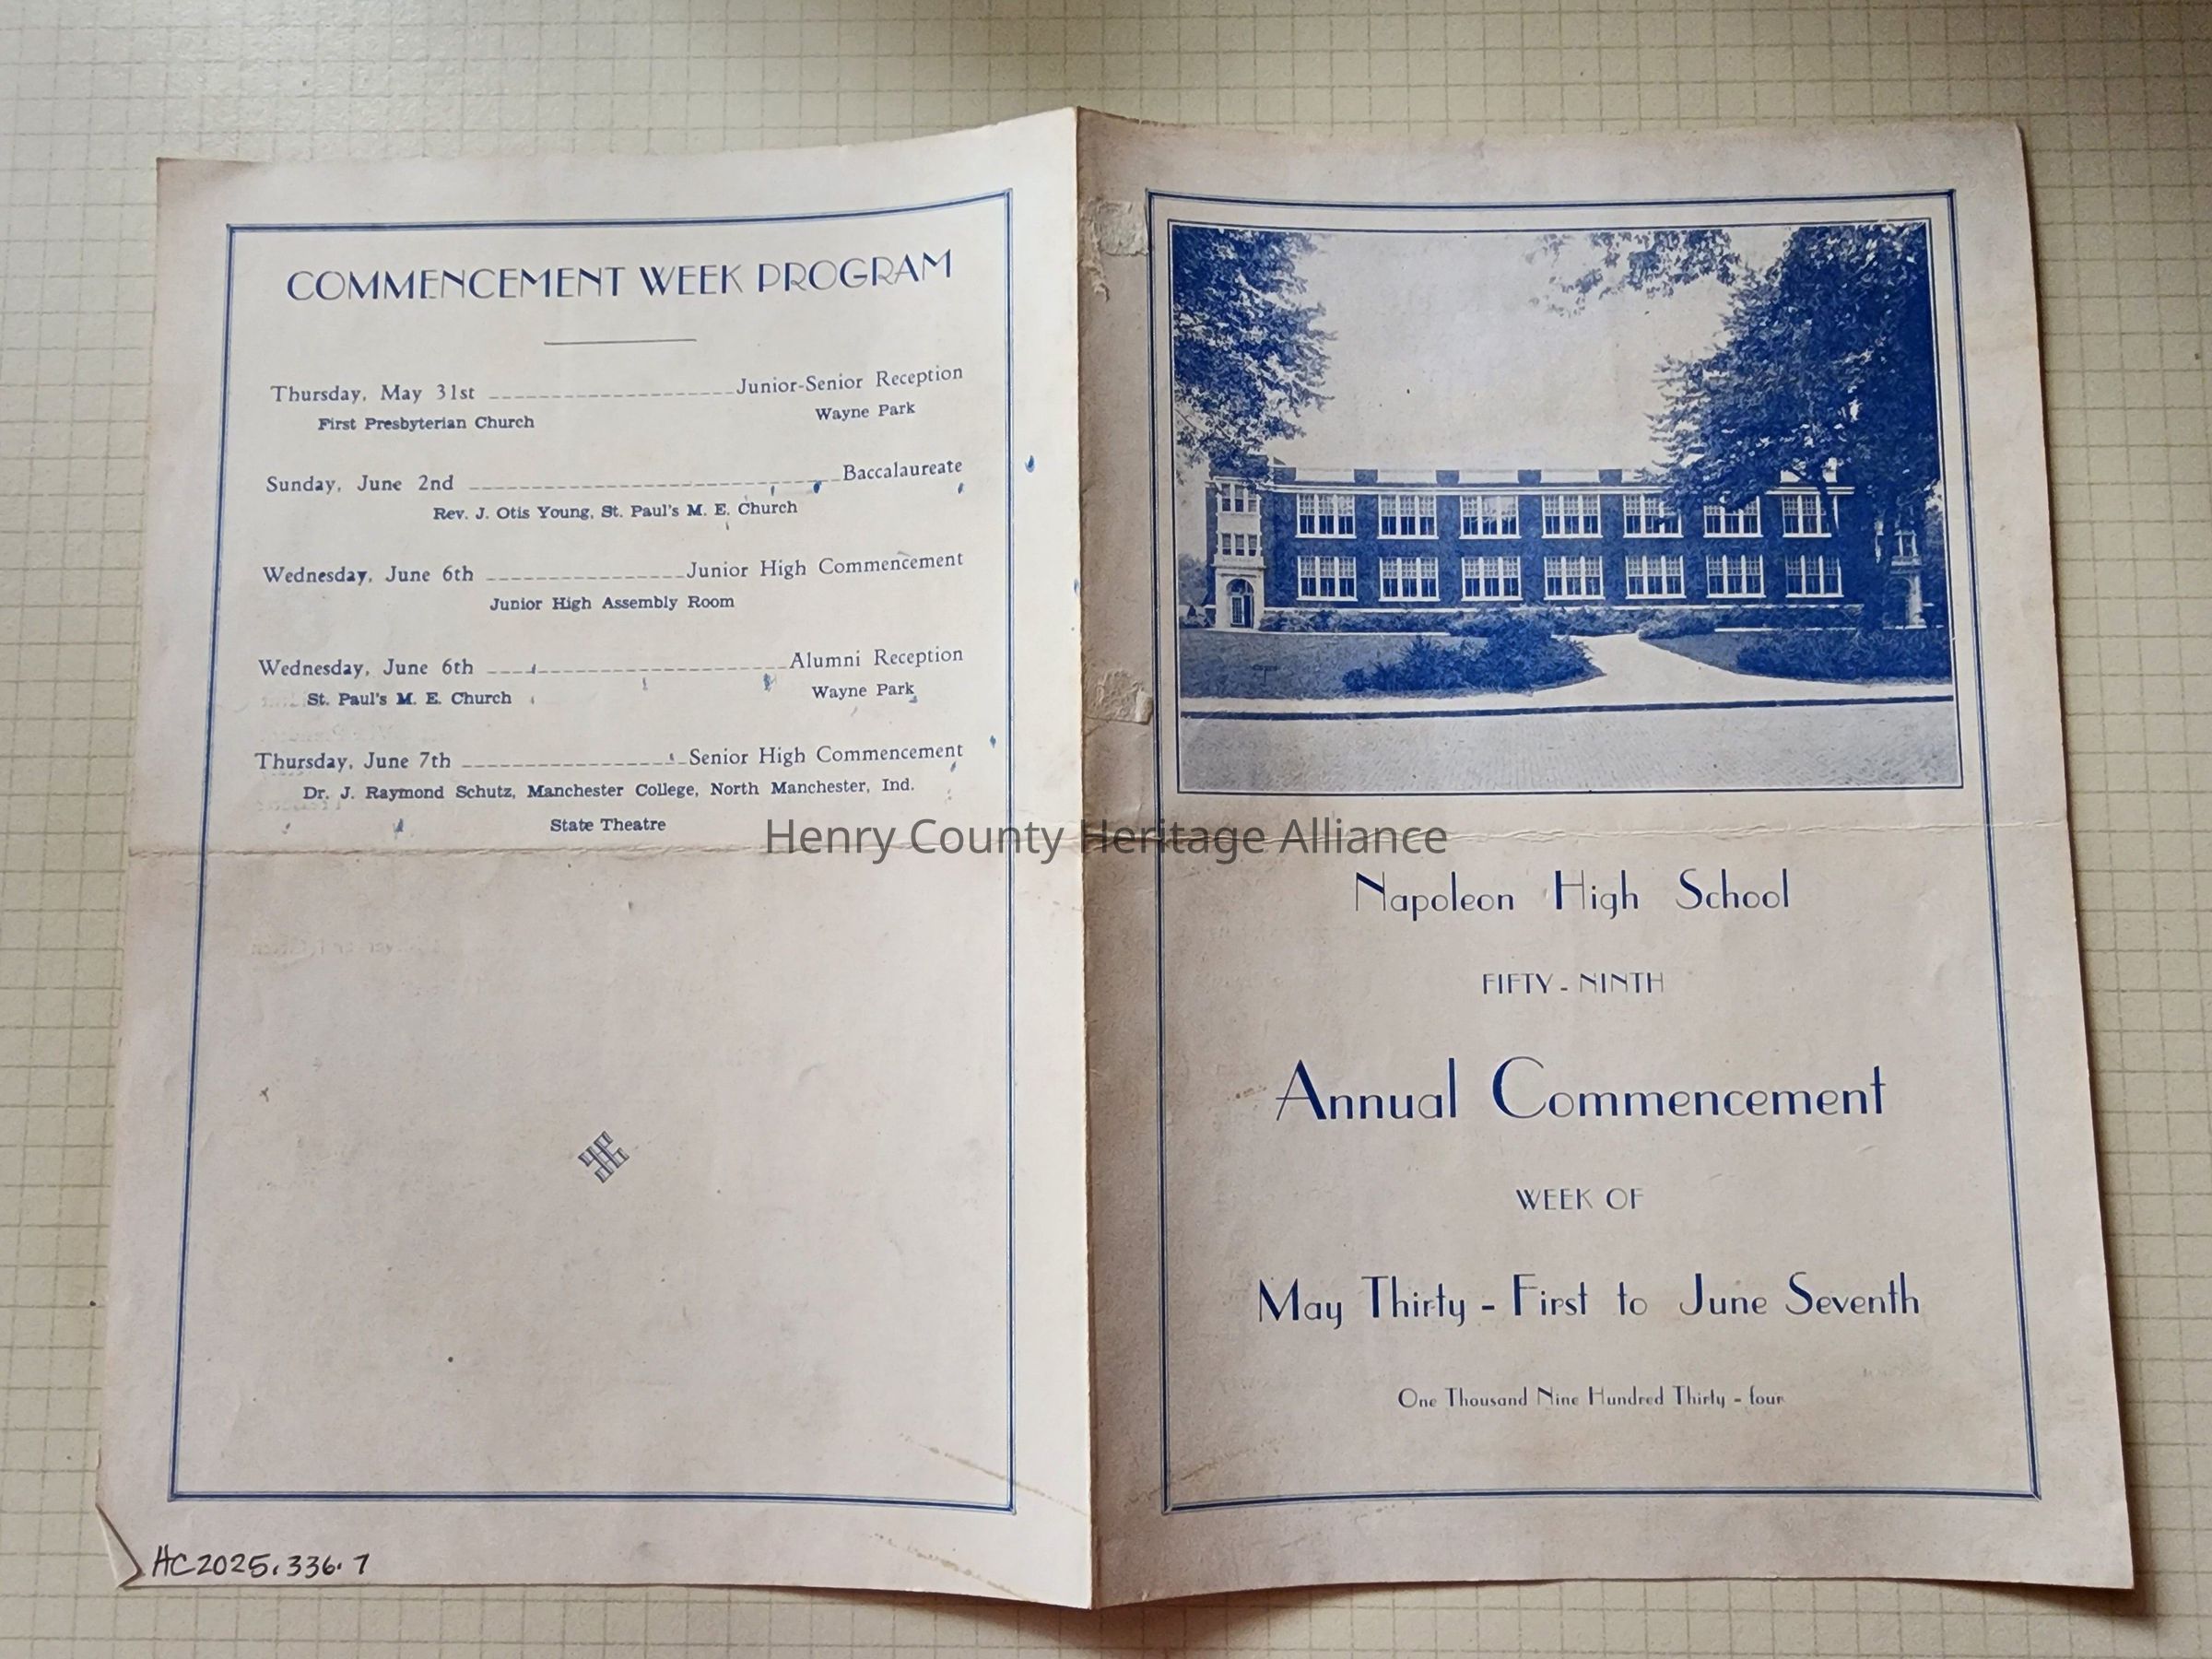 COMMENCEMENT WEEK PROGRAM
Thursday, May 31st ---------------------- Junior-Senior Reception
First Presbyterian Church Wayne Park
Sunday, June 2nd ---------------------- Baccalaureate
Rev. J. Otis Young, St. Paul's M. E. Church
Wednesday, June 6th ---------------------- Junior High Commencement
Junior High Assembly Room
Wednesday, June 6th ---------------------- Alumni Reception
St. Paul's M. E. Church Wayne Park
Thursday, June 7th ---------------------- Senior High Commencement
Dr. J. Raymond Schutz, Manchester College, North Manchester, Ind.
State Theatre
HC2025.336.7
Napoleon High School
FIFTY - NINTH
Annual Commencement
WEEK OF
May Thirty - First to June Seventh
One Thousand Nine Hundred Thirty - four
Henry County Heritage Alliance